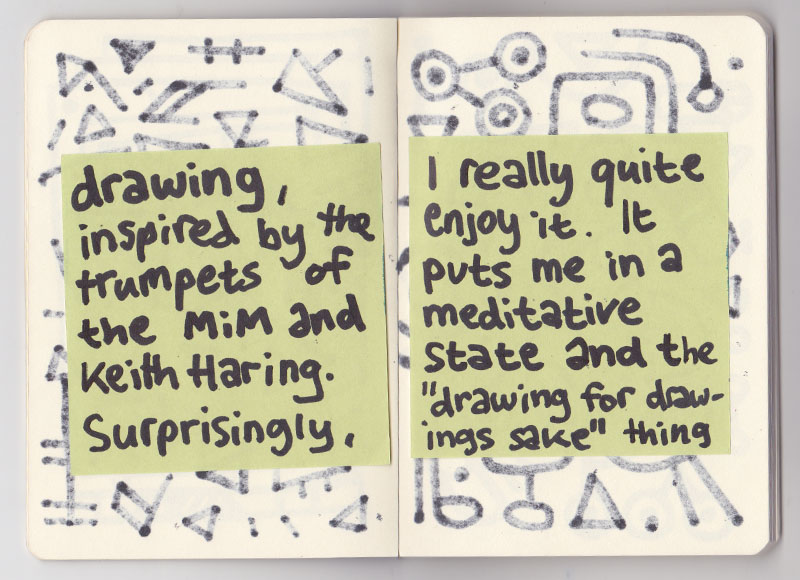 drawing,
inspired by the
trumpets of
the MiM and
Keith Haring.
Surprisingly,
I really quite
enjoy it. It
puts me in a
meditative
state and the
"drawing for draw-
ings sake" thing